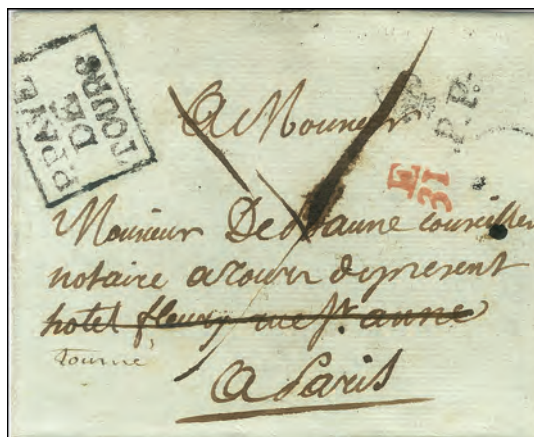 P.PAYÉ
DE
TOURS
P.P.
E
31
A Monsieur
Monsieur De Beaune conseiller
notaire a tours de present
hotel fleury rue St. anne
tourné
A Paris